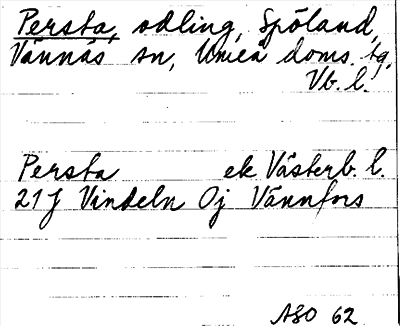 Persta, odling, Spöland,
Vännäs sn, Umeå doms. tg,
Vb. l.
Persta ek Västerb. l.
21 J Vindeln Oj Vännfors
ASO 62